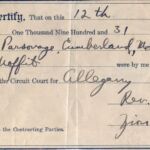 ertify, That on this 12th
One Thousand Nine Hundred and 31
Parsonage, Cumberland,
Moffitt were by me
e Circuit Court for Allegany
Rev.
Zion
to the Contracting Parties.